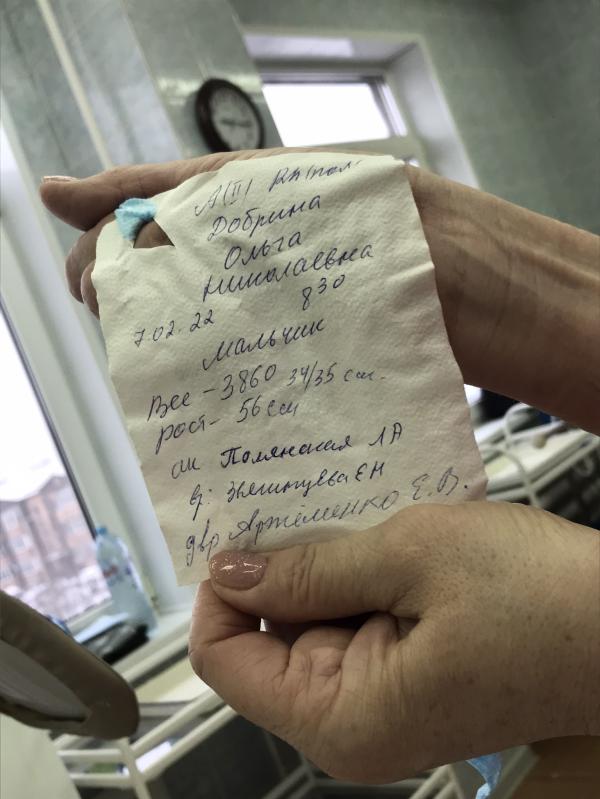 A(II) Rh(пол.
Добрина
Ольга
Николаевна
7.02.22 8 30
Мальчик
Вес - 3860 34/35 см.
рост - 56 см
ак Полянская ЛА
вр: Звегинцева ЕН
двр Артёменко Е.В.